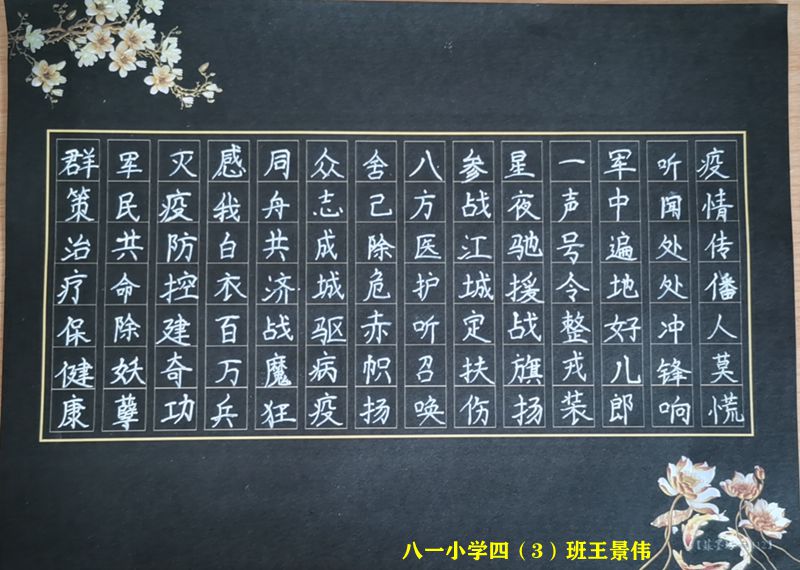 疫情传僠人莫慌
听闻处处冲锋响
军中遍地好儿郎
一声号令整戎装
星夜驰援战旗扬
参战江城定扶伤
八方医护听召唤
舍己除危赤帜扬
众志成城驱病疫
同舟共济战魔狂
感我白衣百万兵
灭疫防控建奇功
军民共命除妖孽
群策治疗保健康
八一小学四（3）班王景伟